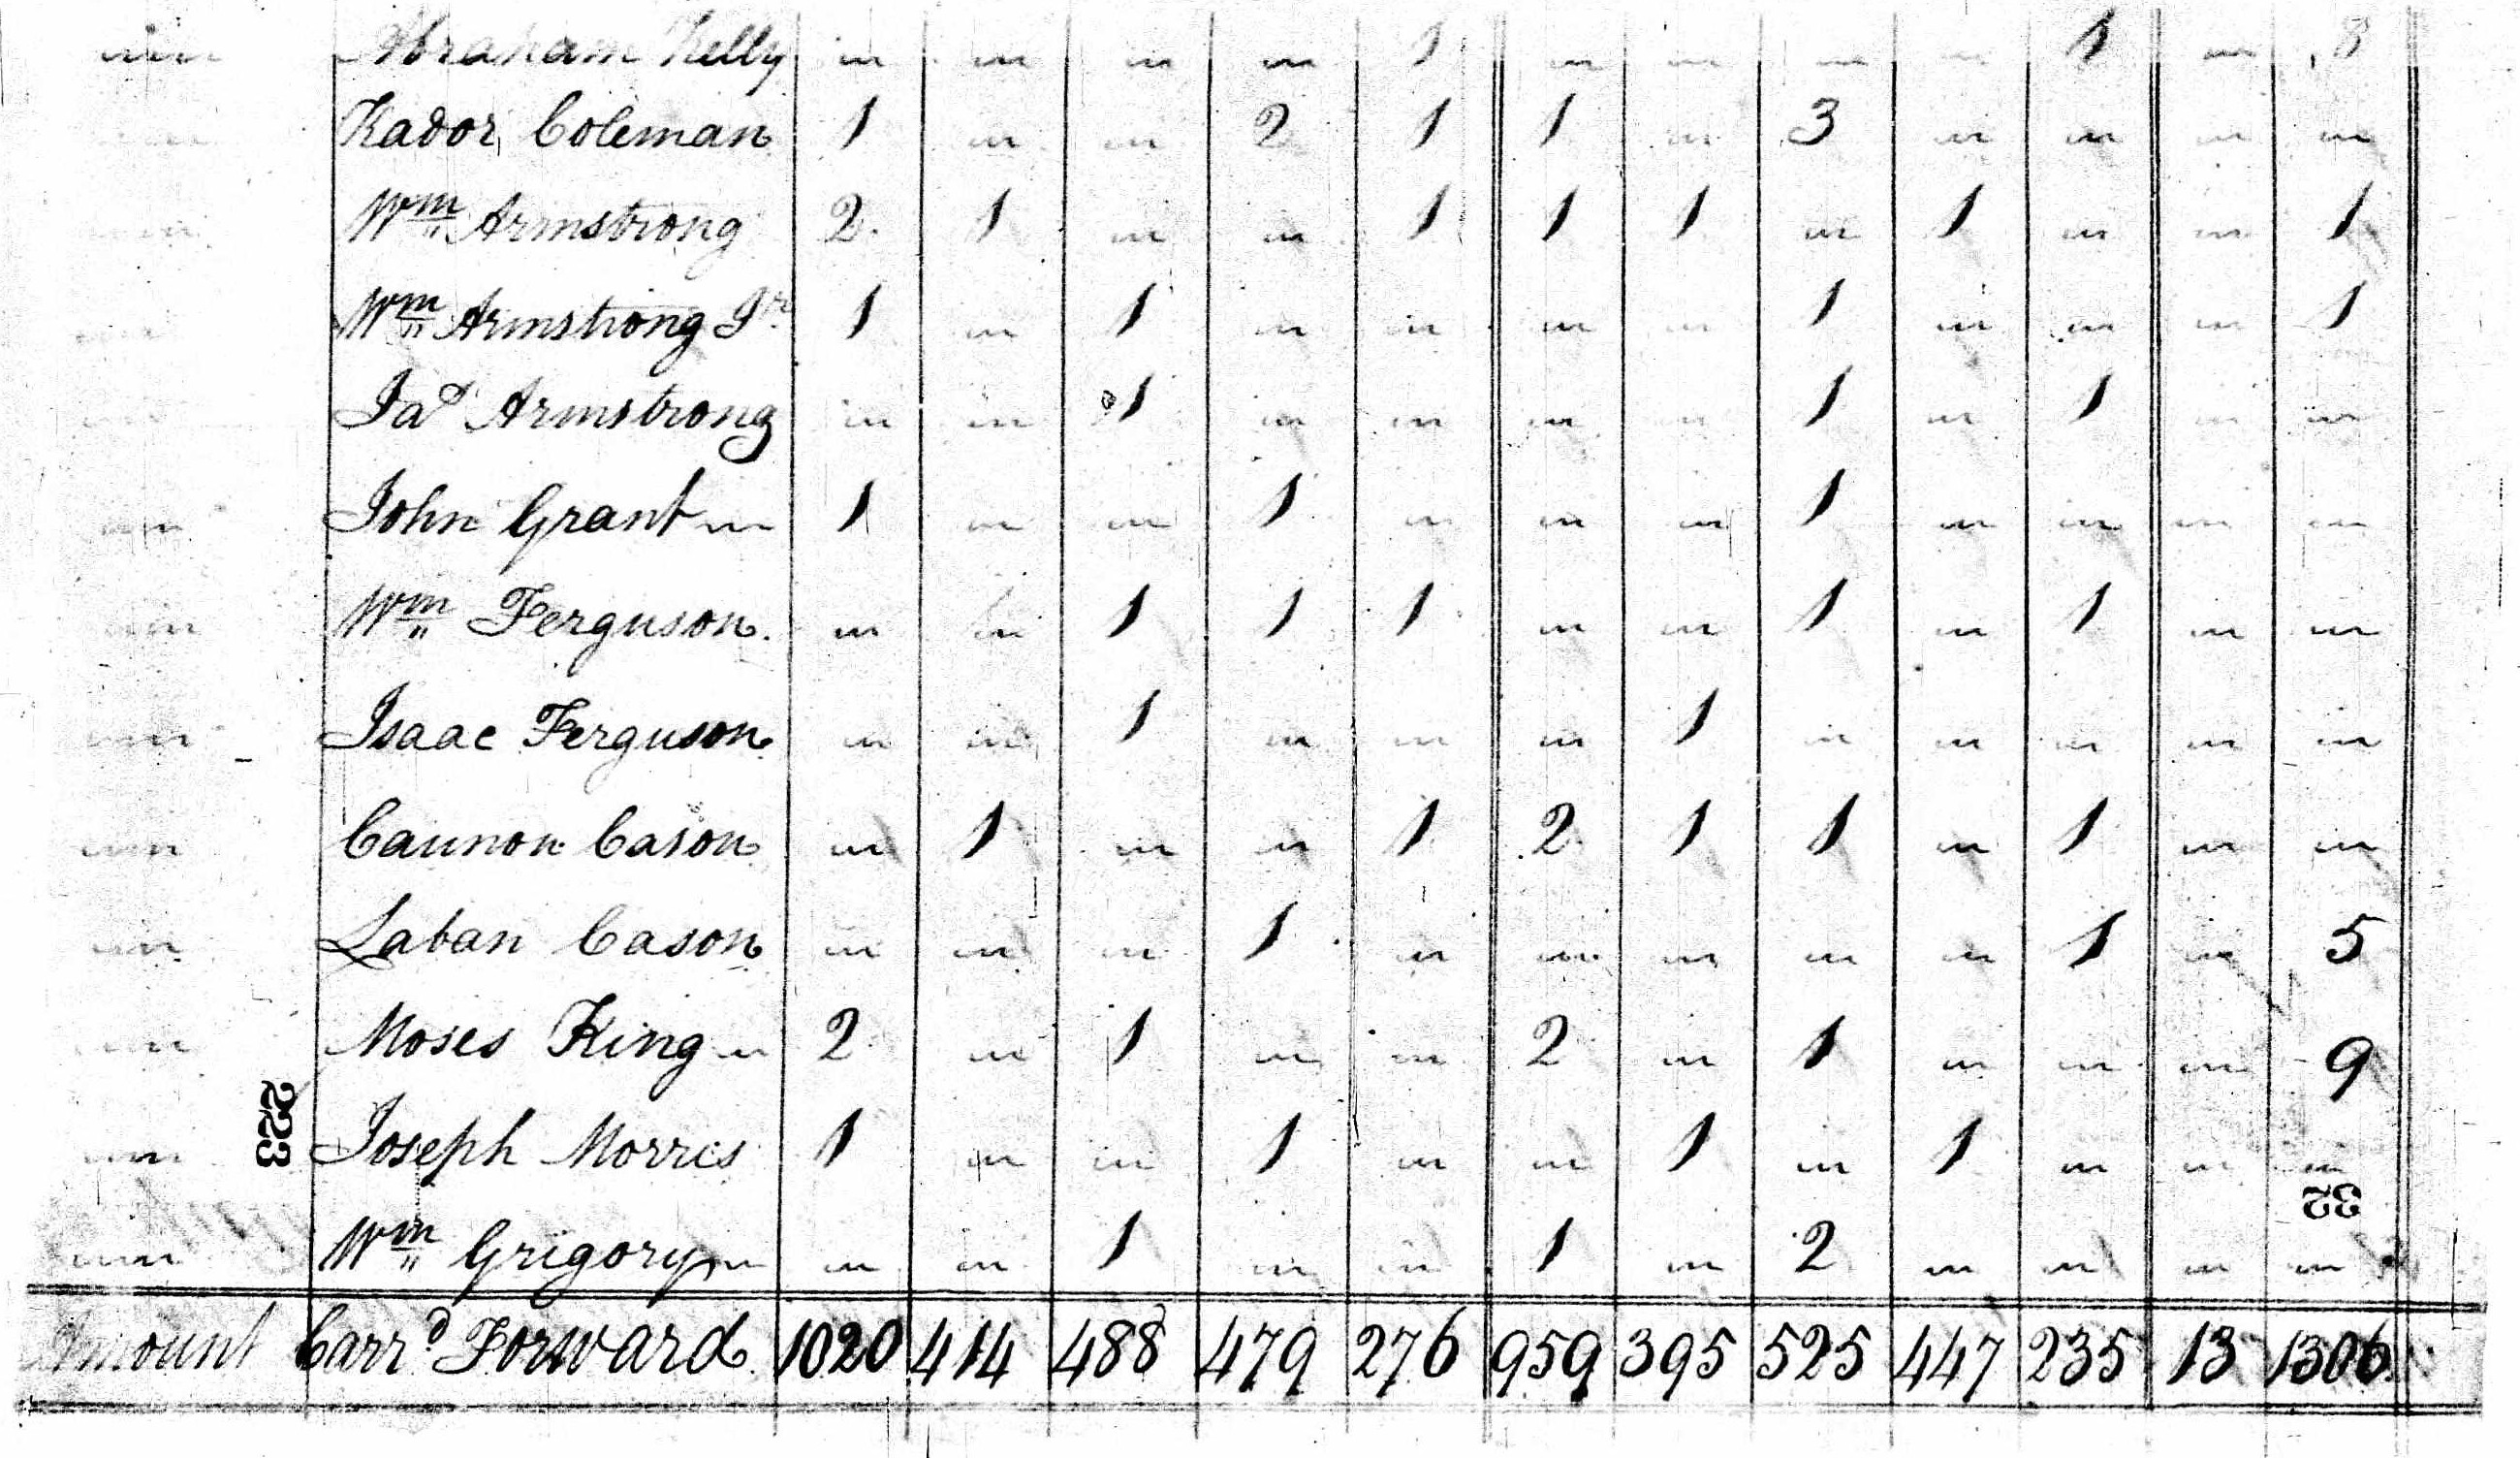 Abraham Kelly " " " " 1 " " " " 1 " 8
Kador Coleman 1 " " 2 1 1 " 3 " " " "
Wm Armstrong 2 1 " " 1 1 1 " 1 " " 1
Wm Armstrong Jr 1 " 1 " " " " 1 " " " 1
Jas Armstrong " " 1 " " " " 1 " 1 " "
John Grant 1 " " 1 " " " 1 " " " "
Wm Ferguson " " 1 1 1 " " 1 " 1 " "
Isaac Ferguson " " 1 " " " 1 " " " " "
Caunon Cason " 1 " " 1 2 1 1 " 1 " "
Laban Cason " " " 1 " " " " " 1 " 5
Moses King 2 " 1 " " 2 " 1 " " " 9
223
Joseph Morris 1 " " 1 " " 1 " 1 " " "
32
Wm Grigory " " 1 " " 1 " 2 " " " "
Amount Carrd Forward 1020 414 488 479 276 959 395 525 447 235 13 1306